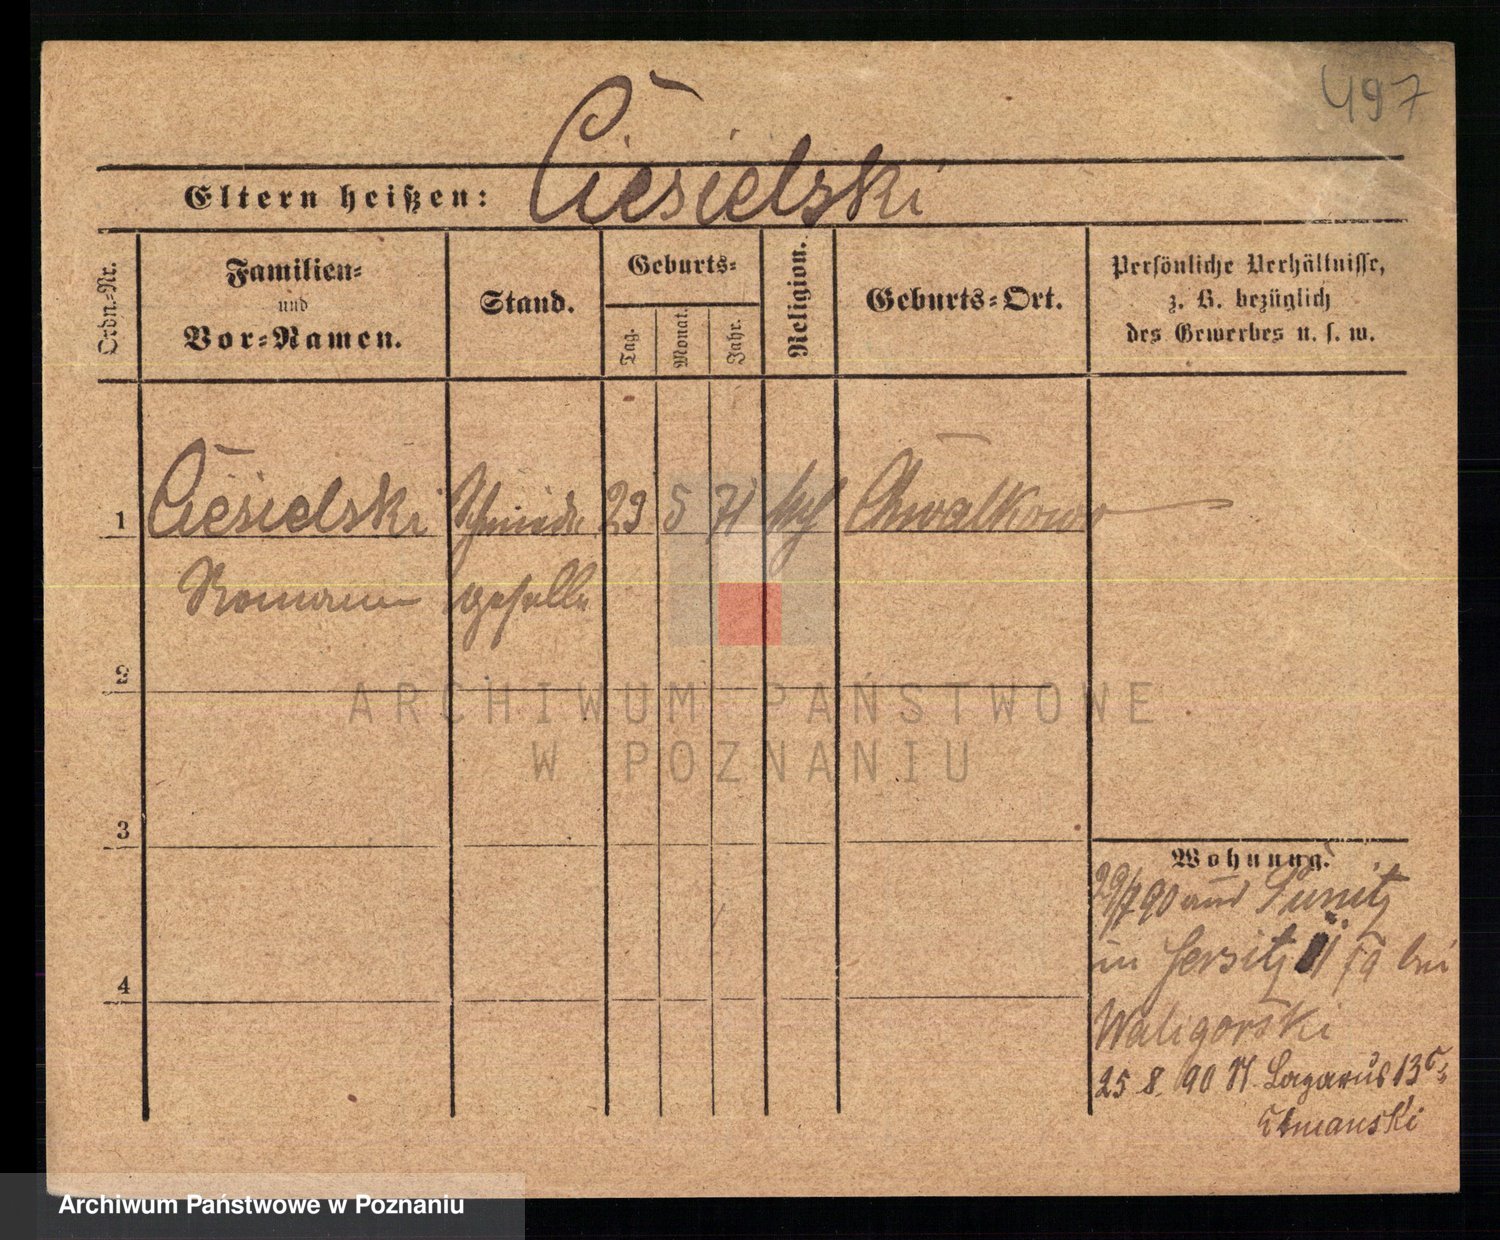 497
Ciesielski
Eltern heißen:
Ordn.-Nr.
Familien-
und
Vor-Namen.
Stand.
Geburts-
Tag.
Monat.
Jahr.
Religion.
Geburts-Ort.
Persönliche Verhältnisse,
z. B. bezüglich
des Gewerbes u. s. w.
1 Ciesielski Schmiede 23 5 71 Chwalkowo
Roman geselle
2
3
4
Wohnung.
29/7 90 aus
in Jersitz bei
Waligorski
25 8. 90 St. Lazarus 13
ARCHIWUM PAŃSTWOWE
W POZNANIU
Archiwum Państwowe w Poznaniu